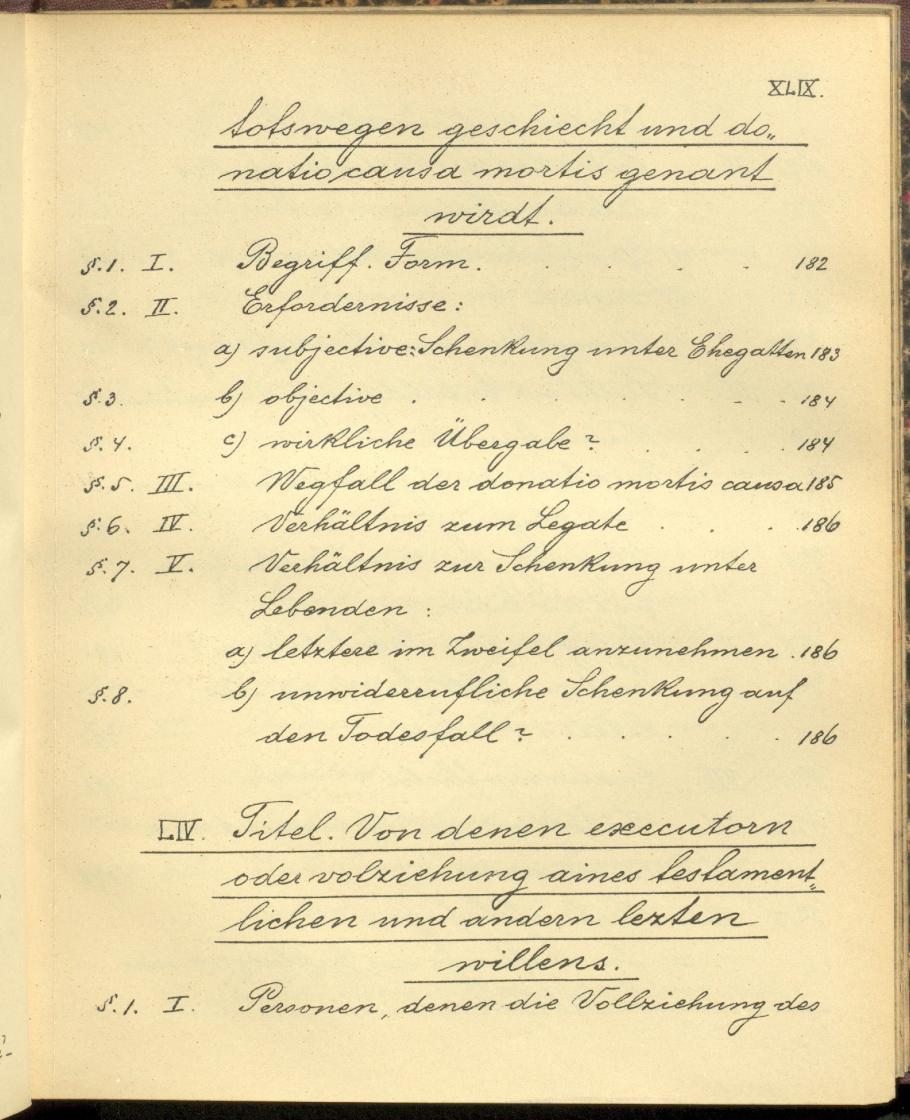 XLIX.
totswegen geschiecht und do„
natio causa mortis genant
wirdt.
§.1. I. Begriff. Form. . . . . 182
§.2. II. Erfordernisse:
a) subjective: Schenkung unter Ehegatten 183
§.3. b) objective . . . . . 184
§.4. c) wirkliche Übergabe? . . . 184
§.5. III. Wegfall der donatio mortis causa 185
§.6. IV. Verhältnis zum Legate . . . 186
§.7. V. Verhältnis zur Schenkung unter
Lebenden :
a) letztere im Zweifel anzunehmen . 186
§.8. b) unwiderrufliche Schenkung auf
den Todesfall? . . . . 186
LIV. Titel. Von denen executorn
oder volziehung aines testament„
lichen und andern lezten
willens.
§.1. I. Personen, denen die Vollziehung des